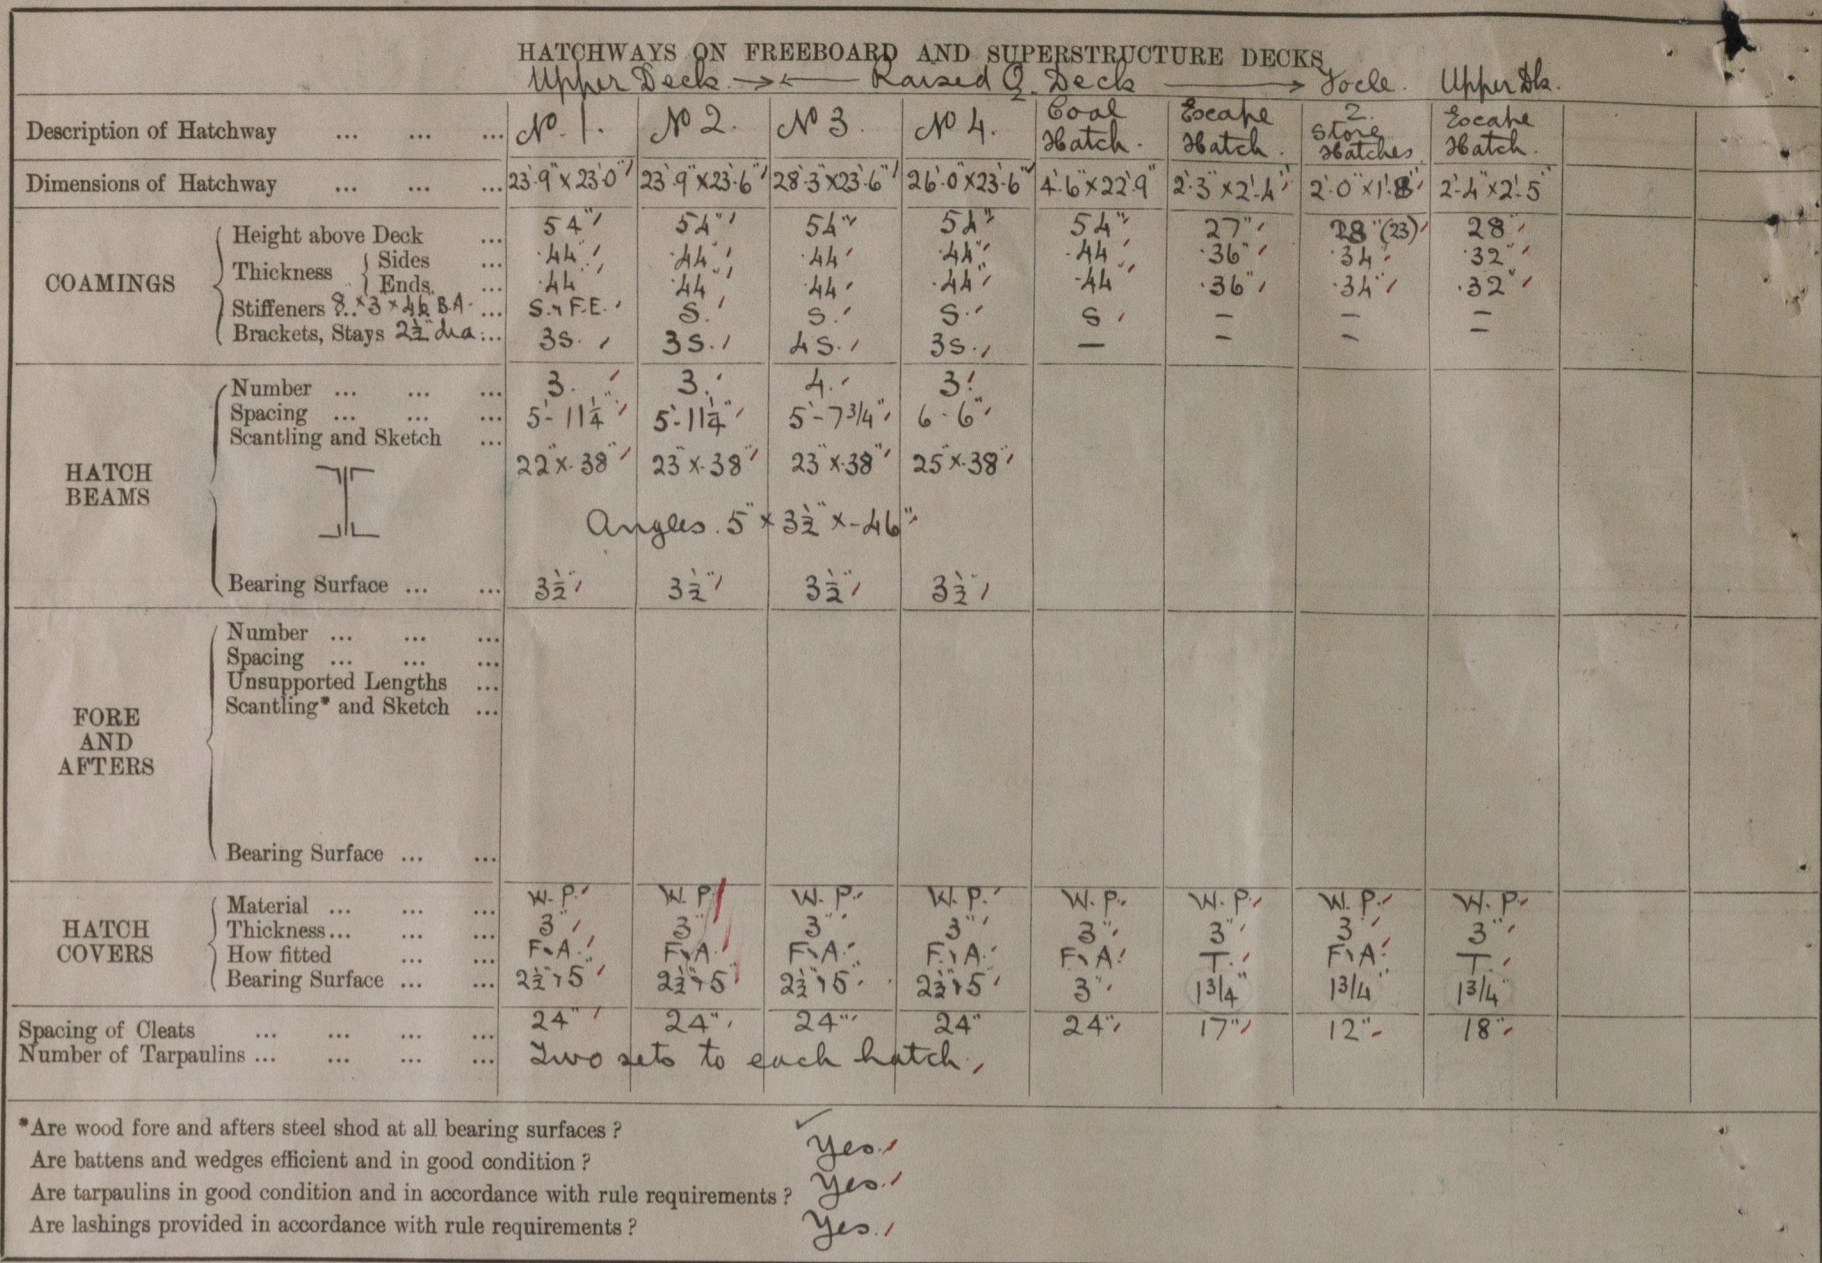 HATCHWAYS ON FREEBOARD AND SUPERSTRUCTURE DECKS
Upper Deck → ← Raised Q. Deck → Focle. Upper Dk.
Description of Hatchway ... ... ... No. 1. No 2. No 3. No 4. Coal Hatch. Escape Hatch. 2. Store Hatches Escape Hatch.
Dimensions of Hatchway ... ... ... 23'.9" x 23'.0" 23'.9" x 23'.6" 28'.3" x 23'.6" 26'.0" x 23'.6" 4'.6" x 22'.9" 2'.3" x 2'.4" 2'.0" x 1'.8" 2'-4" x 2'.5"
COAMINGS
Height above Deck ... 54" 54" 54" 54" 54" 27" 28" (23) 28"
Thickness { Sides ... .44" .44" .44" .44" .44 .36" .34 .32"
Ends. ... .44 .44" .44 .44" .44 .36" .34" .32"
Stiffeners 8" x 3 x .46 B.A. ... S. & F.E. S. S. S. S — — —
Brackets, Stays 2½" dia ... 3S. 3S. 4S. 3S. — — — —
HATCH BEAMS
Number ... ... ... 3. 3. 4. 3.
Spacing ... ... ... 5'-11¼" 5'-11¼" 5'-7¾" 6-6"
Scantling and Sketch ... 22" x .38" 23" x .38" 23" x .38" 25" x .38"
Angles. 5" x 3½" x .46"
Bearing Surface ... ... 3½" 3½" 3½" 3½"
FORE AND AFTERS
Number ... ... ...
Spacing ... ... ...
Unsupported Lengths ...
Scantling* and Sketch ...
Bearing Surface ... ...
HATCH COVERS
Material ... ... ... W. P. W. P. W. P. W. P. W. P. W. P. W. P. W. P.
Thickness ... ... ... 3" 3" 3" 3" 3" 3" 3" 3"
How fitted ... ... F & A. F & A. F & A. F & A. F & A. T. F & A. T.
Bearing Surface ... ... 2½" & 5" 2½" & 5" 2½" & 5" 2½" & 5" 3" 1¾" 1¾" 1¾"
Spacing of Cleats ... ... ... ... 24" 24" 24" 24" 24" 17" 12" 18"
Number of Tarpaulins ... ... ... ... Two sets to each hatch.
*Are wood fore and afters steel shod at all bearing surfaces ? ✓
Are battens and wedges efficient and in good condition ? Yes.
Are tarpaulins in good condition and in accordance with rule requirements ? Yes.
Are lashings provided in accordance with rule requirements ? Yes.